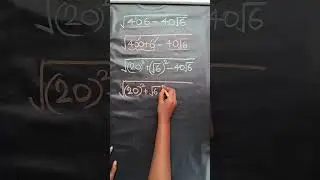 √(406 - 40√6)
√(400+6 - 40√6)
√((20)² + (√6)² - 40√6)
√((20)² + √6)²